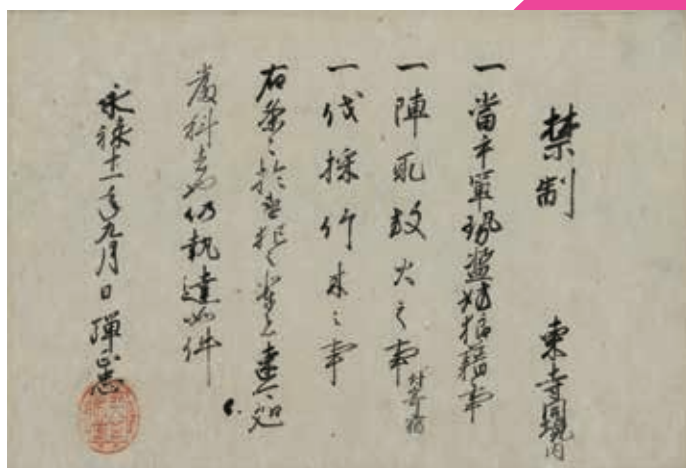 禁制 東寺同境内
一當手軍勢濫妨狼藉事
一陣取放火之事付寄宿
一伐採竹木之事
右条々於違犯之輩者速可処
嚴科者也仍執達如件
永禄十一年九月日 彈正忠